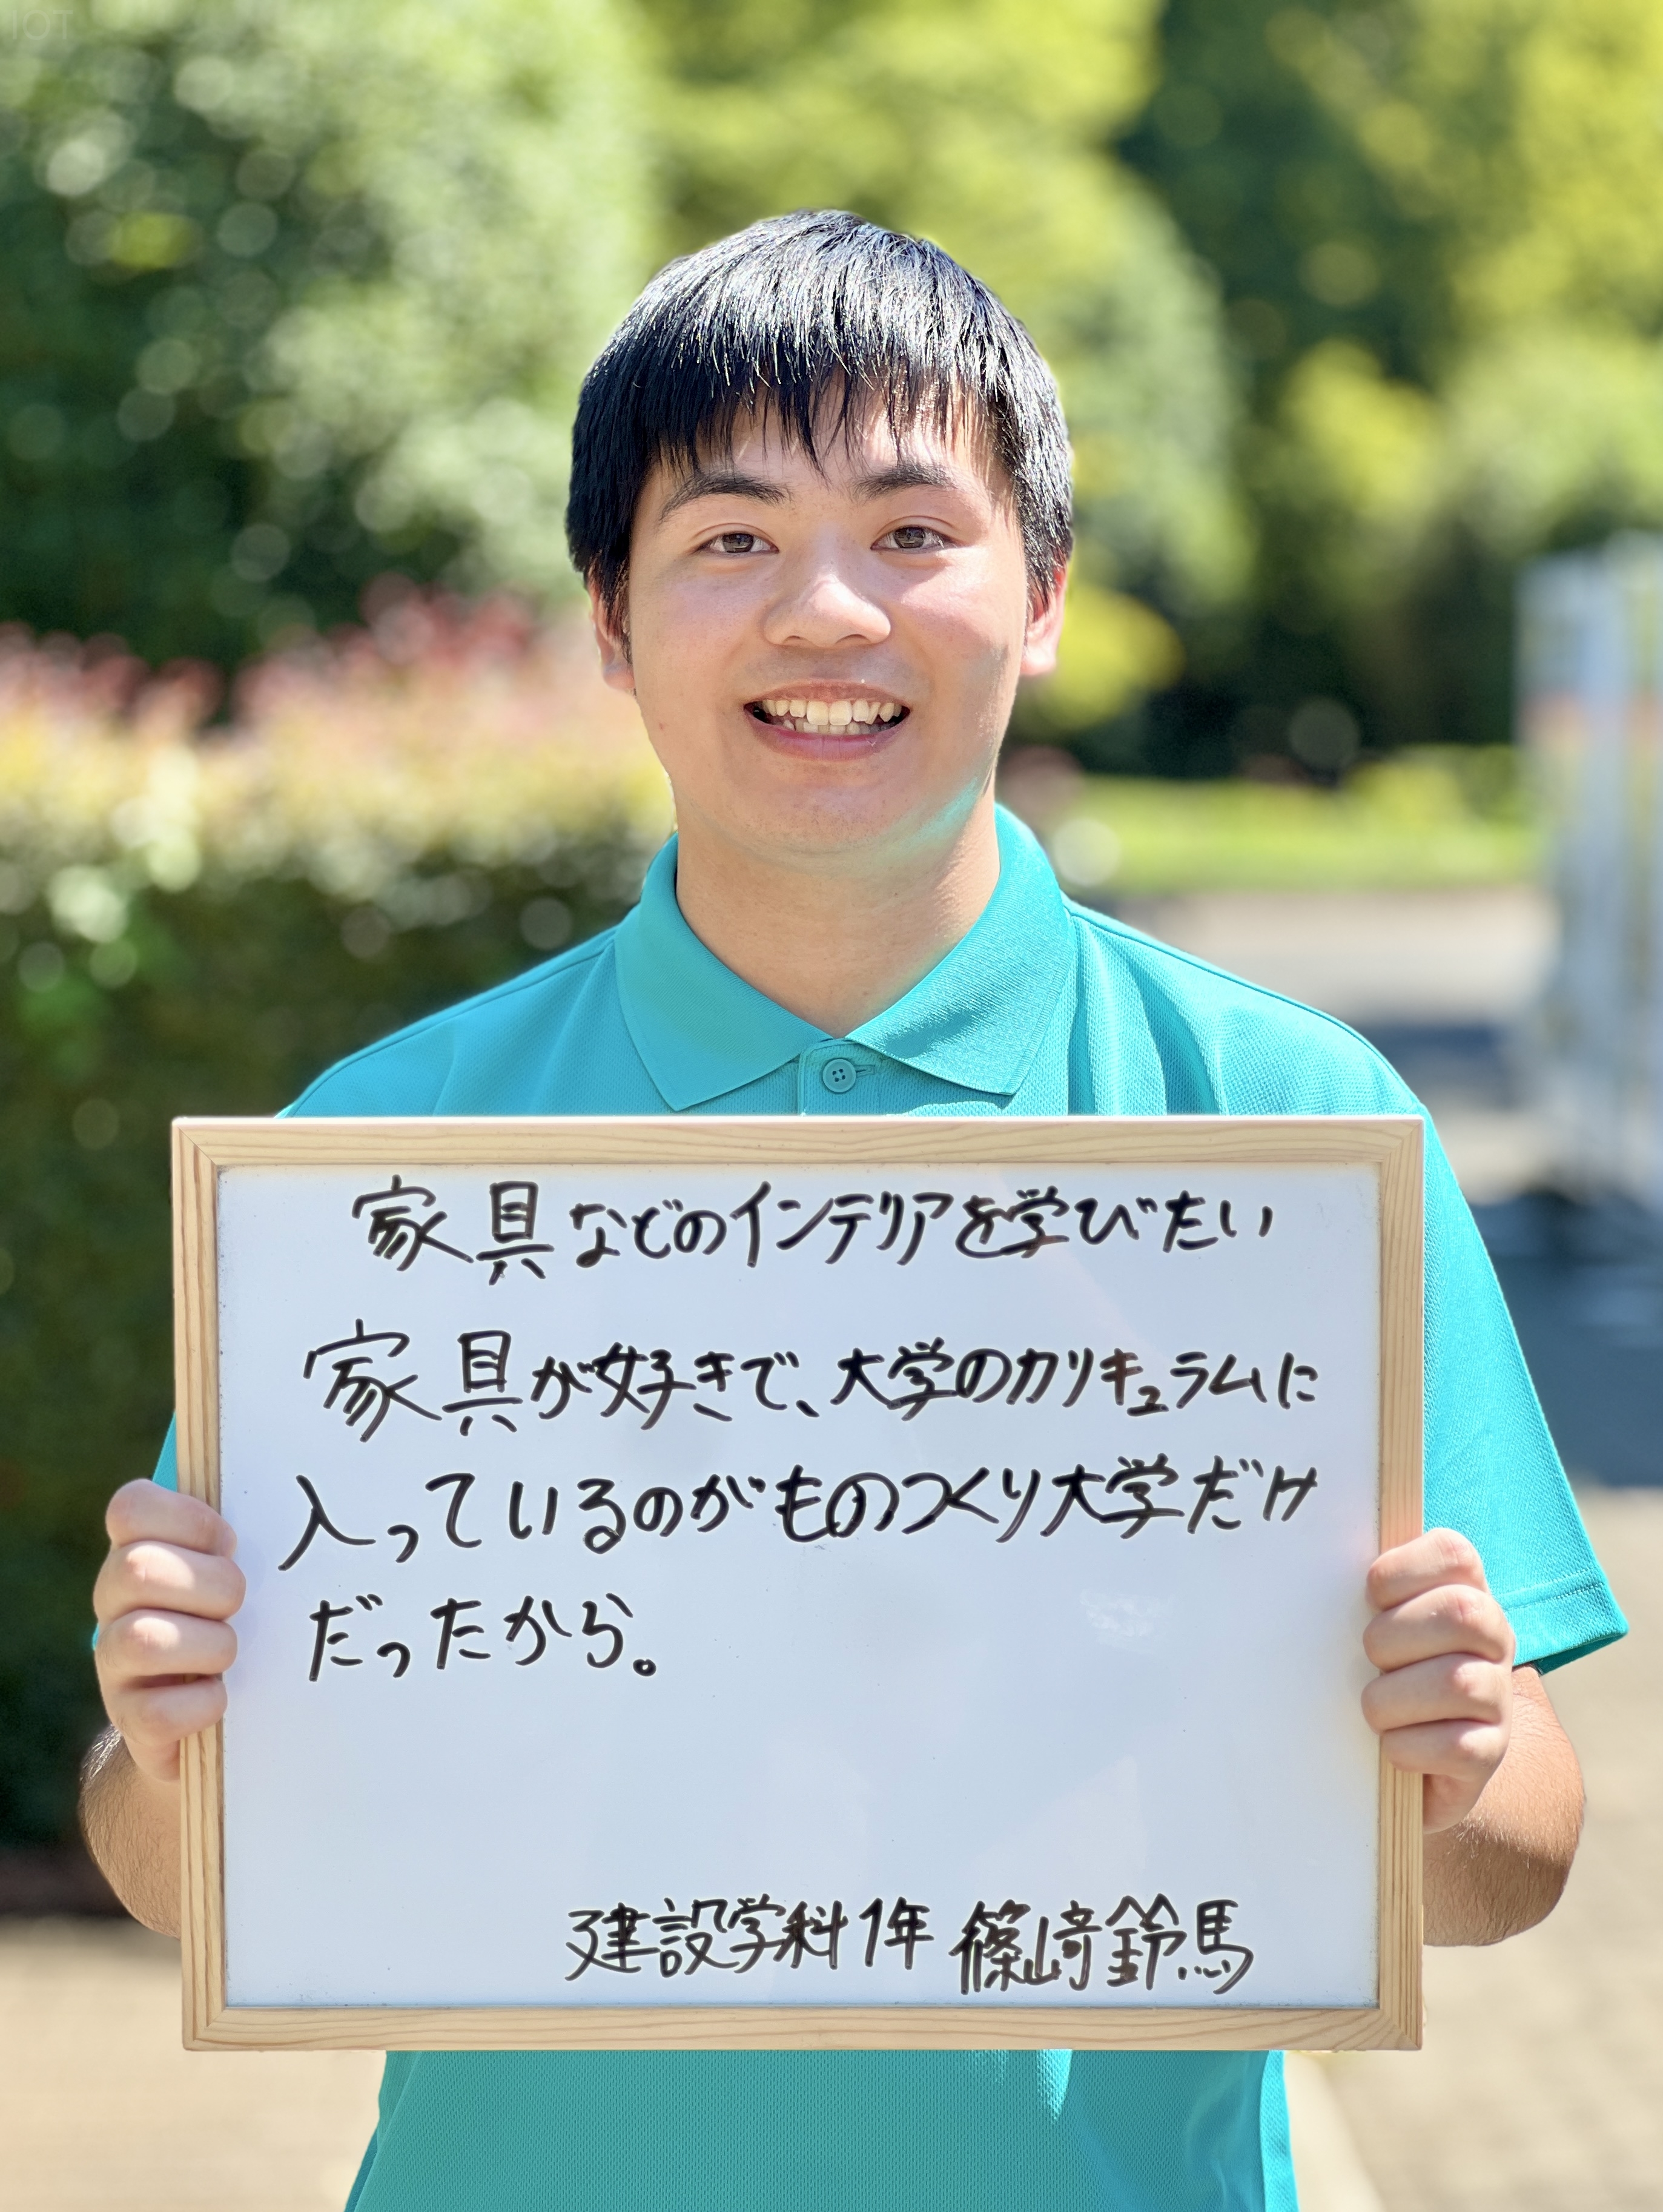 IOT
家具などのインテリアを学びたい
家具が好きで、大学のカリキュラムに
入っているのがものつくり大学だけ
だったから。
建設学科1年 篠﨑鈴馬